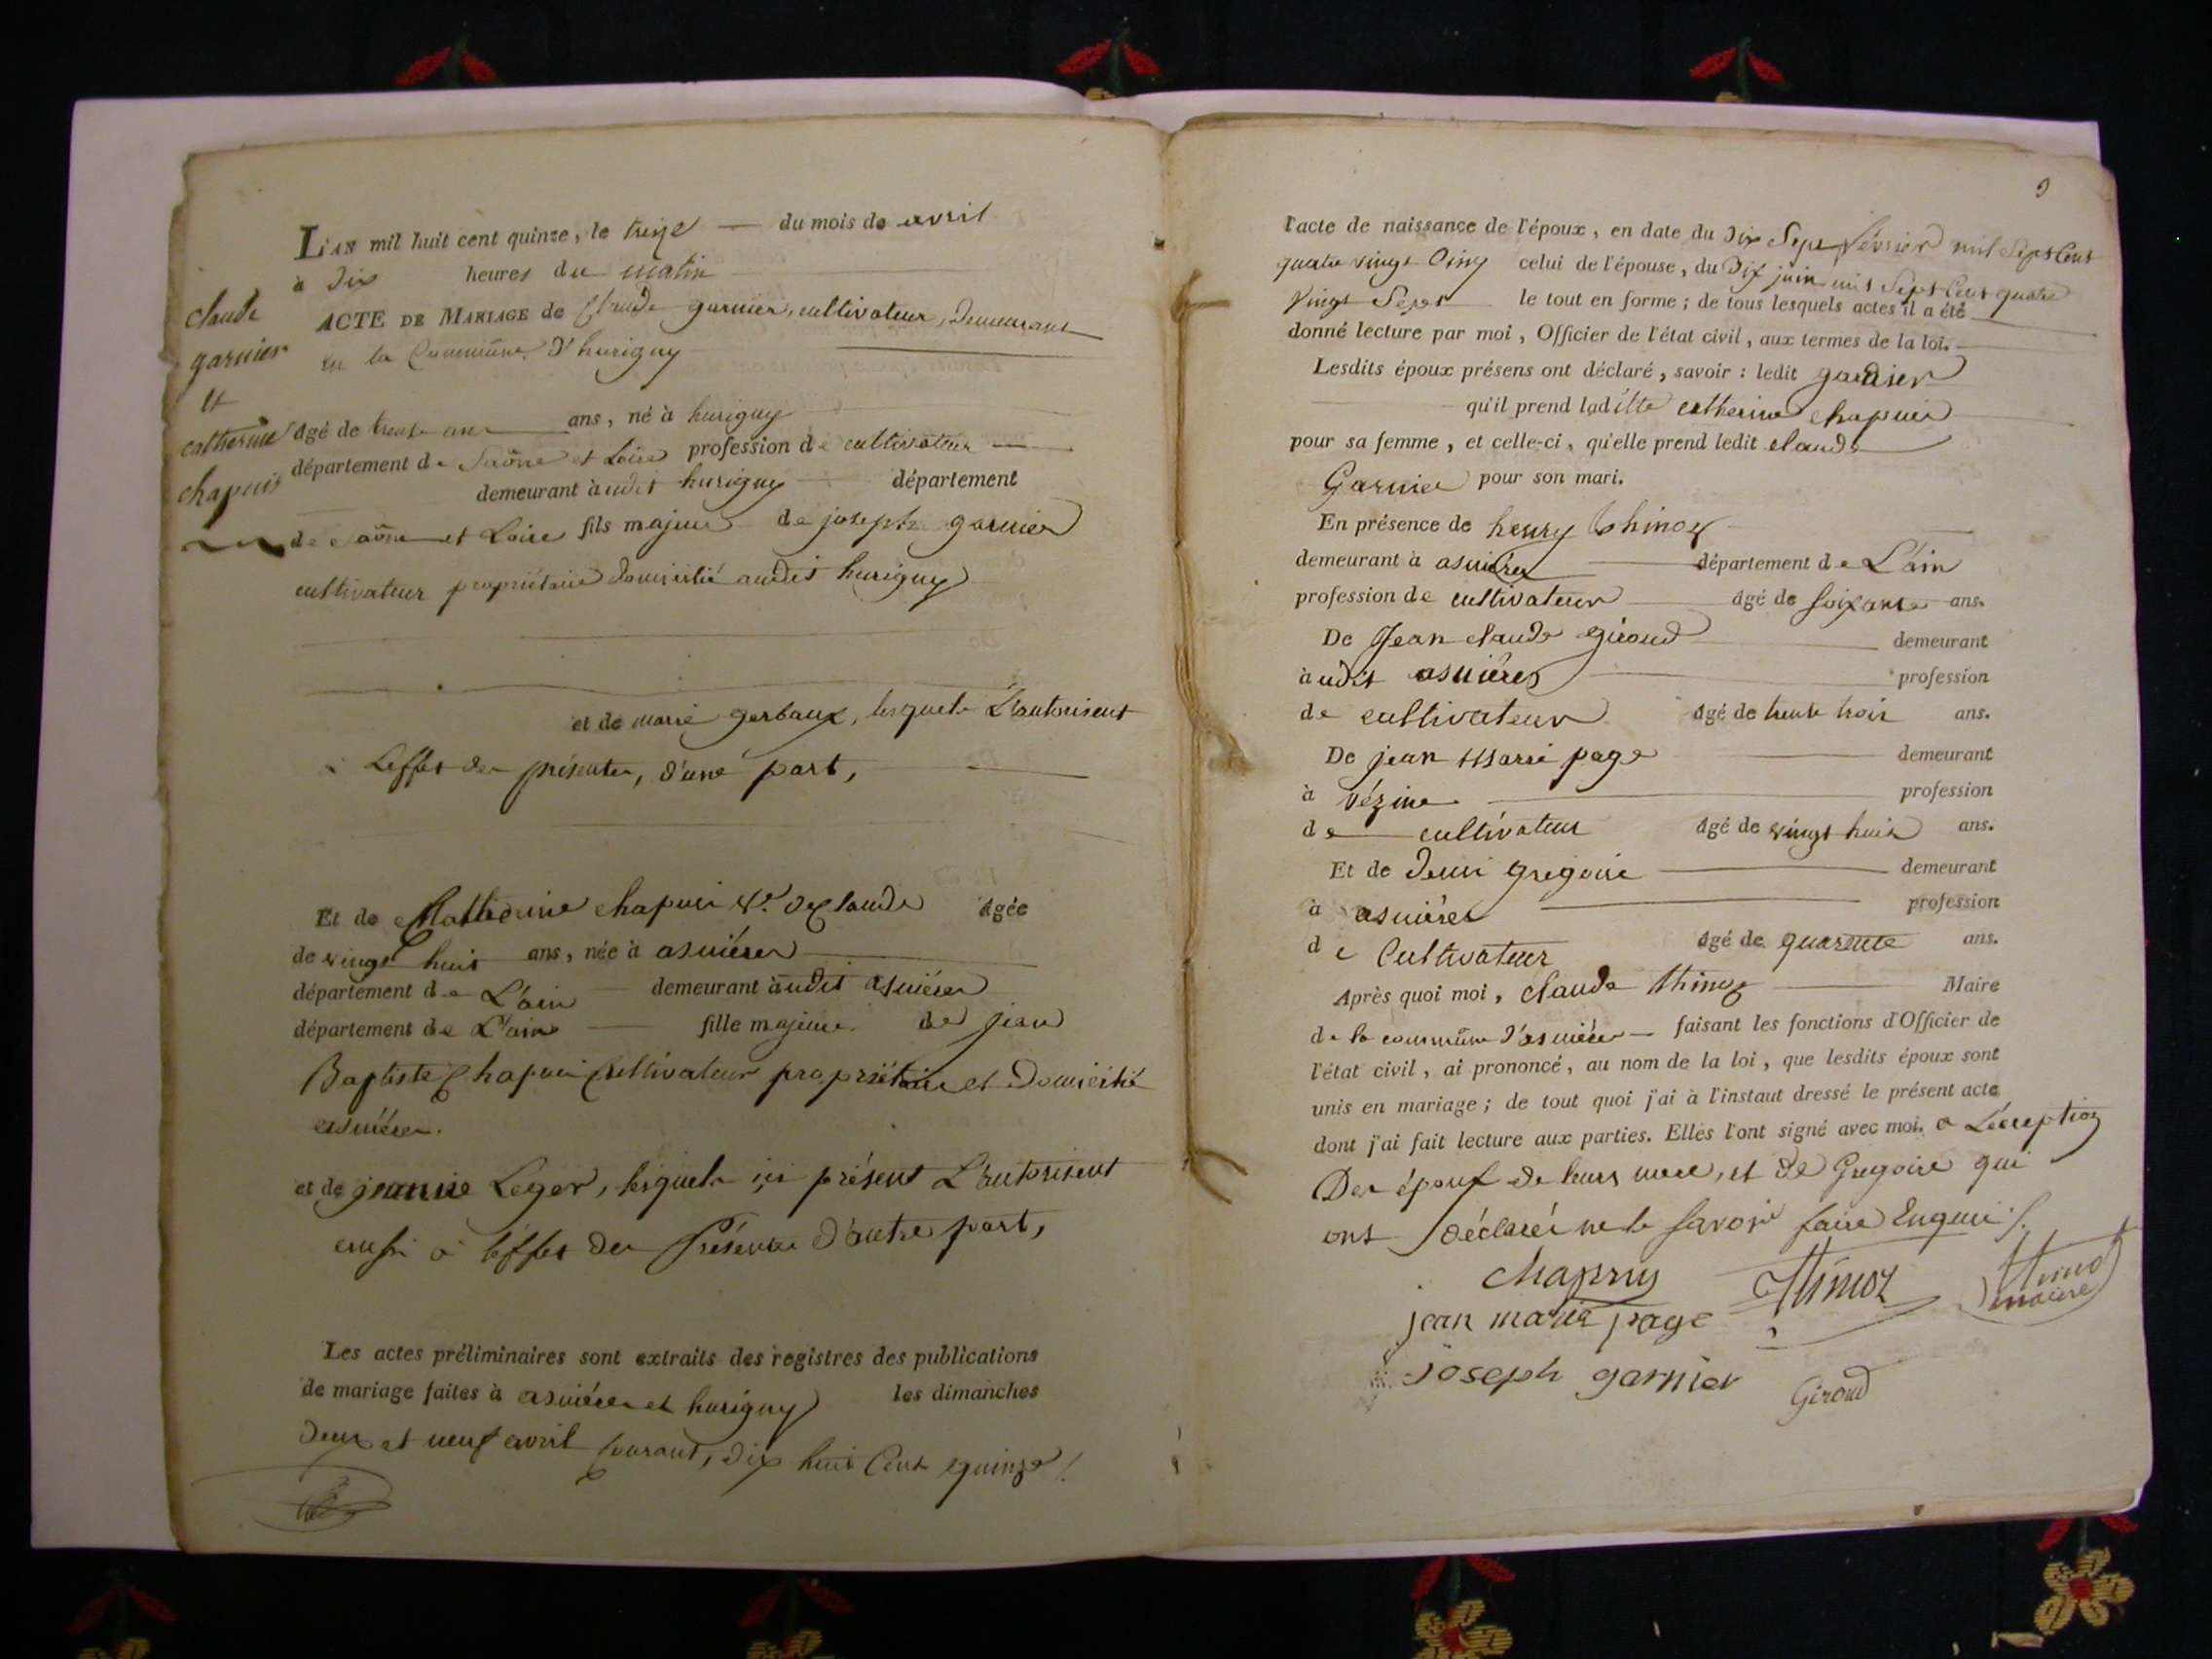 claude
garnier
et
catherine
chapuis
L'AN mil huit cent quinze, le treize du mois de avril
à dix heures du matin
ACTE DE MARIAGE de Claude garnier, cultivateur, demeurant
en la Commune d'hurigny
âgé de trente ans ans, né à hurigny
département de Saône et Loire profession de cultivateur
demeurant audit hurigny département
de Saône et Loire fils majeur de joseph garnier
cultivateur propriétaire domicilié audit hurigny
et de marie gerbaux, lesquels L'autorisent
à Leffet des présentes, d'une part,
Et de Catherine chapuis claude âgée
de vingt huit ans, née à asnières
département de L'ain demeurant audit asnières
département de L'ain fille majeure de jean
Baptiste Chapuis Cultivateur propriétaire et domicilié
asnières.
et de jeanne Leger, lesquels ici présent L'autorisent
aussi à l'effet des Présentes d'autre part,
Les actes préliminaires sont extraits des registres des publications
de mariage faites à asnières et hurigny les dimanches
deux et neuf avril courant, dix huit Cent quinze
9
l'acte de naissance de l'époux, en date du dix Sept février mil Sept Cent
quatre vingt Cinq celui de l'épouse, du dix juin mil Sept Cent quatre
Vingt Sept le tout en forme; de tous lesquels actes il a été
donné lecture par moi, Officier de l'état civil, aux termes de la loi.
Lesdits époux présens ont déclaré, savoir: ledit garnier
qu'il prend laditte catherine chapuis
pour sa femme, et celle-ci, qu'elle prend ledit claude
Garnier pour son mari.
En présence de henry thinoz
demeurant à asnières département de L'ain
profession de cultivateur âgé de soixante ans.
De Jean claude giroud demeurant
audit asnières profession
de cultivateur âgé de trente trois ans.
De jean Marie page demeurant
à Vézine profession
de cultivateur âgé de vingt huit ans.
Et de denis gregoire demeurant
à asnières profession
de Cultivateur âgé de quarente ans.
Après quoi moi, claude thinoz Maire
de la commune d'asnières faisant les fonctions d'Officier de
l'état civil, ai prononcé, au nom de la loi, que lesdits époux sont
unis en mariage; de tout quoi j'ai à l'instant dressé le présent acte
dont j'ai fait lecture aux parties. Elles l'ont signé avec moi. a Léxception
Des époux de leurs mere, et de Gregoire qui
ont déclarés ne le savoir faire Enquis
Chapuy
thinoz
thinoz
maire
jean marie page
joseph garnier
Giroud